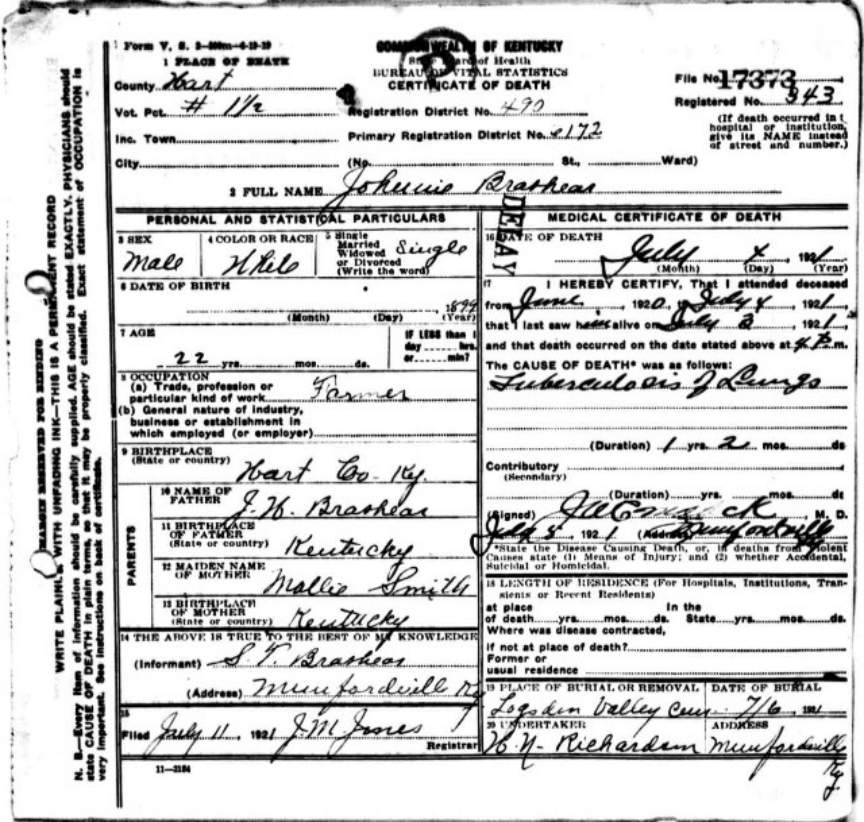 Form V. S. 2—500m—4-19-19
COMMONWEALTH OF KENTUCKY
State Board of Health
BUREAU OF VITAL STATISTICS
CERTIFICATE OF DEATH
1 PLACE OF DEATH
County Hart
Vot. Pct. # 1½
Inc. Town
City
Registration District No. 490
Primary Registration District No. 6172
(No. St., Ward)
File No. 17373
Registered No. 343
(If death occurred in
hospital or institution,
give its NAME instead
of street and number.)
2 FULL NAME Johnnie Brashear
DELAY
PERSONAL AND STATISTICAL PARTICULARS
3 SEX
Male
4 COLOR OR RACE
White
5 Single
Married
Widowed
or Divorced
(Write the word)
Single
6 DATE OF BIRTH
1899
(Month) (Day) (Year)
7 AGE
22 yrs. mos. ds.
IF LESS than 1
day hrs.
or min?
8 OCCUPATION
(a) Trade, profession or
particular kind of work Farmer
(b) General nature of industry,
business or establishment in
which employed (or employer)
9 BIRTHPLACE
(State or country) Hart Co. Ky.
PARENTS
10 NAME OF
FATHER J. H. Brashear
11 BIRTHPLACE
OF FATHER
(State or country) Kentucky
12 MAIDEN NAME
OF MOTHER Mollie Smith
13 BIRTHPLACE
OF MOTHER
(State or country) Kentucky
14 THE ABOVE IS TRUE TO THE BEST OF MY KNOWLEDGE
(Informant) S. T. Brashear
(Address) Munfordville Ky
15
Filed July 11, 1921 J. M. Jones
Registrar
11—2184
MEDICAL CERTIFICATE OF DEATH
16 DATE OF DEATH
July 4, 1921
(Month) (Day) (Year)
17 I HEREBY CERTIFY, That I attended deceased
from June, 1920, to July 4, 1921
that I last saw him alive on July 3, 1921,
and that death occurred on the date stated above at m.
The CAUSE OF DEATH* was as follows:
Tuberculosis of Lungs
(Duration) 1 yrs. 2 mos. ds
Contributory
(Secondary)
(Duration) yrs. mos. ds
(Signed) M. D.
July 5, 1921 (Address) Munfordville
*State the Disease Causing Death, or, in deaths from Violent
Causes state (1) Means of Injury; and (2) whether Accidental,
Suicidal or Homicidal.
18 LENGTH OF RESIDENCE (For Hospitals, Institutions, Tran-
sients or Recent Residents)
at place In the
of death yrs. mos. ds. State yrs. mos. ds.
Where was disease contracted,
if not at place of death?
Former or
usual residence
19 PLACE OF BURIAL OR REMOVAL
Logsden Valley Cem
DATE OF BURIAL
7/6, 1921
20 UNDERTAKER
H. N. Richardson
ADDRESS
Munfordville
Ky.
MARGIN RESERVED FOR BINDING
WRITE PLAINLY, WITH UNFADING INK—THIS IS A PERMANENT RECORD
N. B.—Every item of information should be carefully supplied. AGE should be stated EXACTLY. PHYSICIANS should
state CAUSE OF DEATH in plain terms, so that it may be properly classified. Exact statement of OCCUPATION is
very important. See instructions on back of certificate.